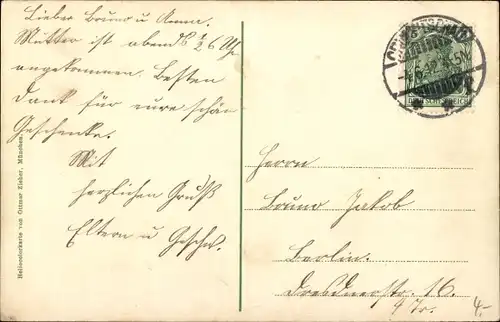 Lieber Bruno u Anna.
Mutter ist abends 1/2 6 Uhr
angekommen. Besten
Dank für eure schön
Geschenke.
Mit
herzlichen Gruß
Eltern u Geschw.
Heliocolorkarte von Ottmar Zieher, München.
DEUTSCHES REICH
Herrn
Bruno Jakob
Berlin.
Dresdnerstr. 16.
4 Tr.
4.-